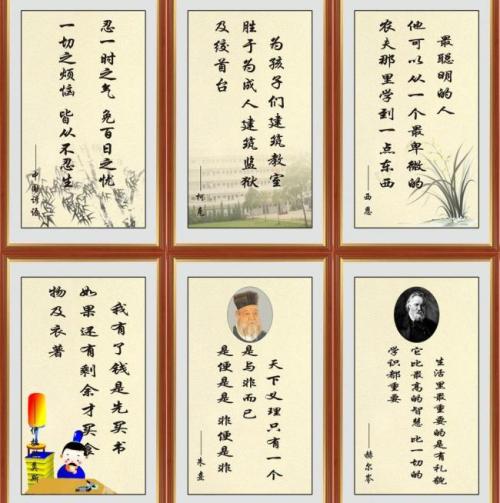 忍一时之气 免百日之忧
一切之烦恼 皆从不忍生
——中国谚语
为孩子们建筑教室
胜于为成人建筑监狱
及绞首台
——柯克
最聪明的人
他可以从一个最卑微的
农夫那里学到一点东西
——西恩
我有了钱是先买书
如果还有剩余才买食
物及衣著
莫斯
天下义理只有一个
是与非而已
是便是是 非便是非
——朱熹
生活里最重要的是有礼貌
它比最高的智慧 比一切的
学识都重要
——赫尔岑